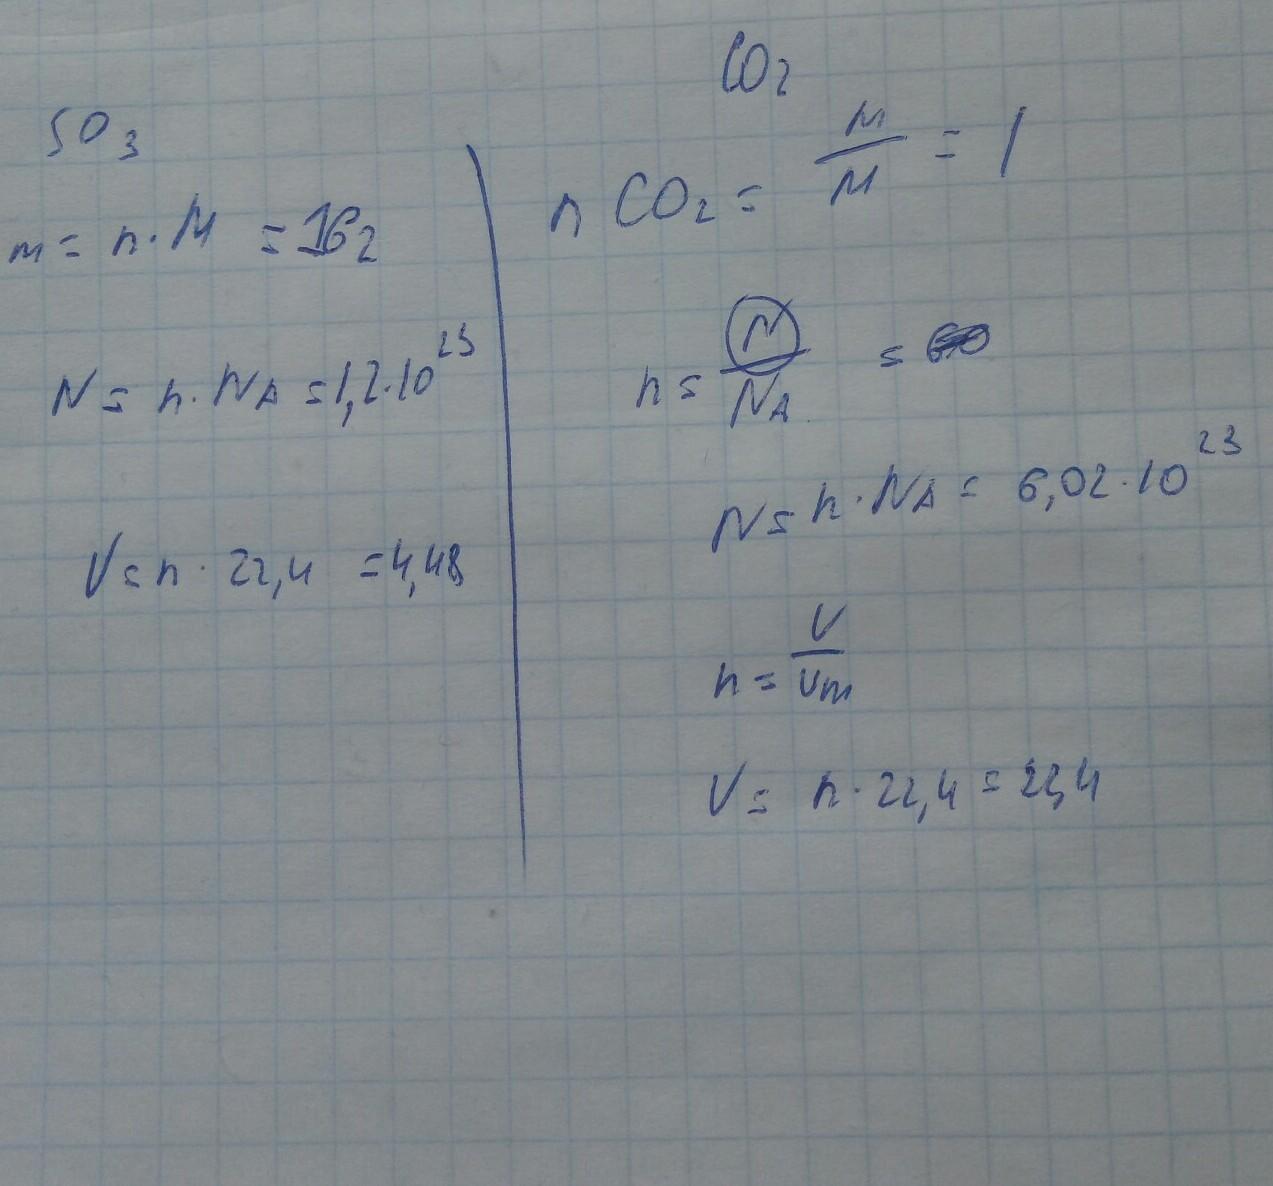 SO₃
m = n · M = 16г
N = n · NA = 1,2 · 10²³
V = n · 22,4 = 4,48
CO₂
n CO₂ = m/M = 1
n = N/NA =
N = n · NA = 6,02 · 10²³
n = V/Vm
V = n · 22,4 = 22,4